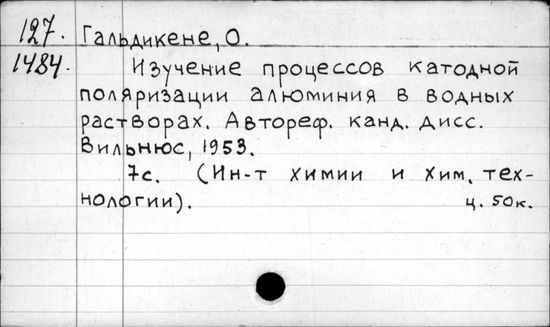 127. Гальдикене, О.
1484. Изучение процессов катодной
поляризации алюминия в водных
растворах. Автореф. канд. дисс.
Вильнюс, 1953.
7с. (Ин-т химии и хим. тех-
нологии). ц. 50к.